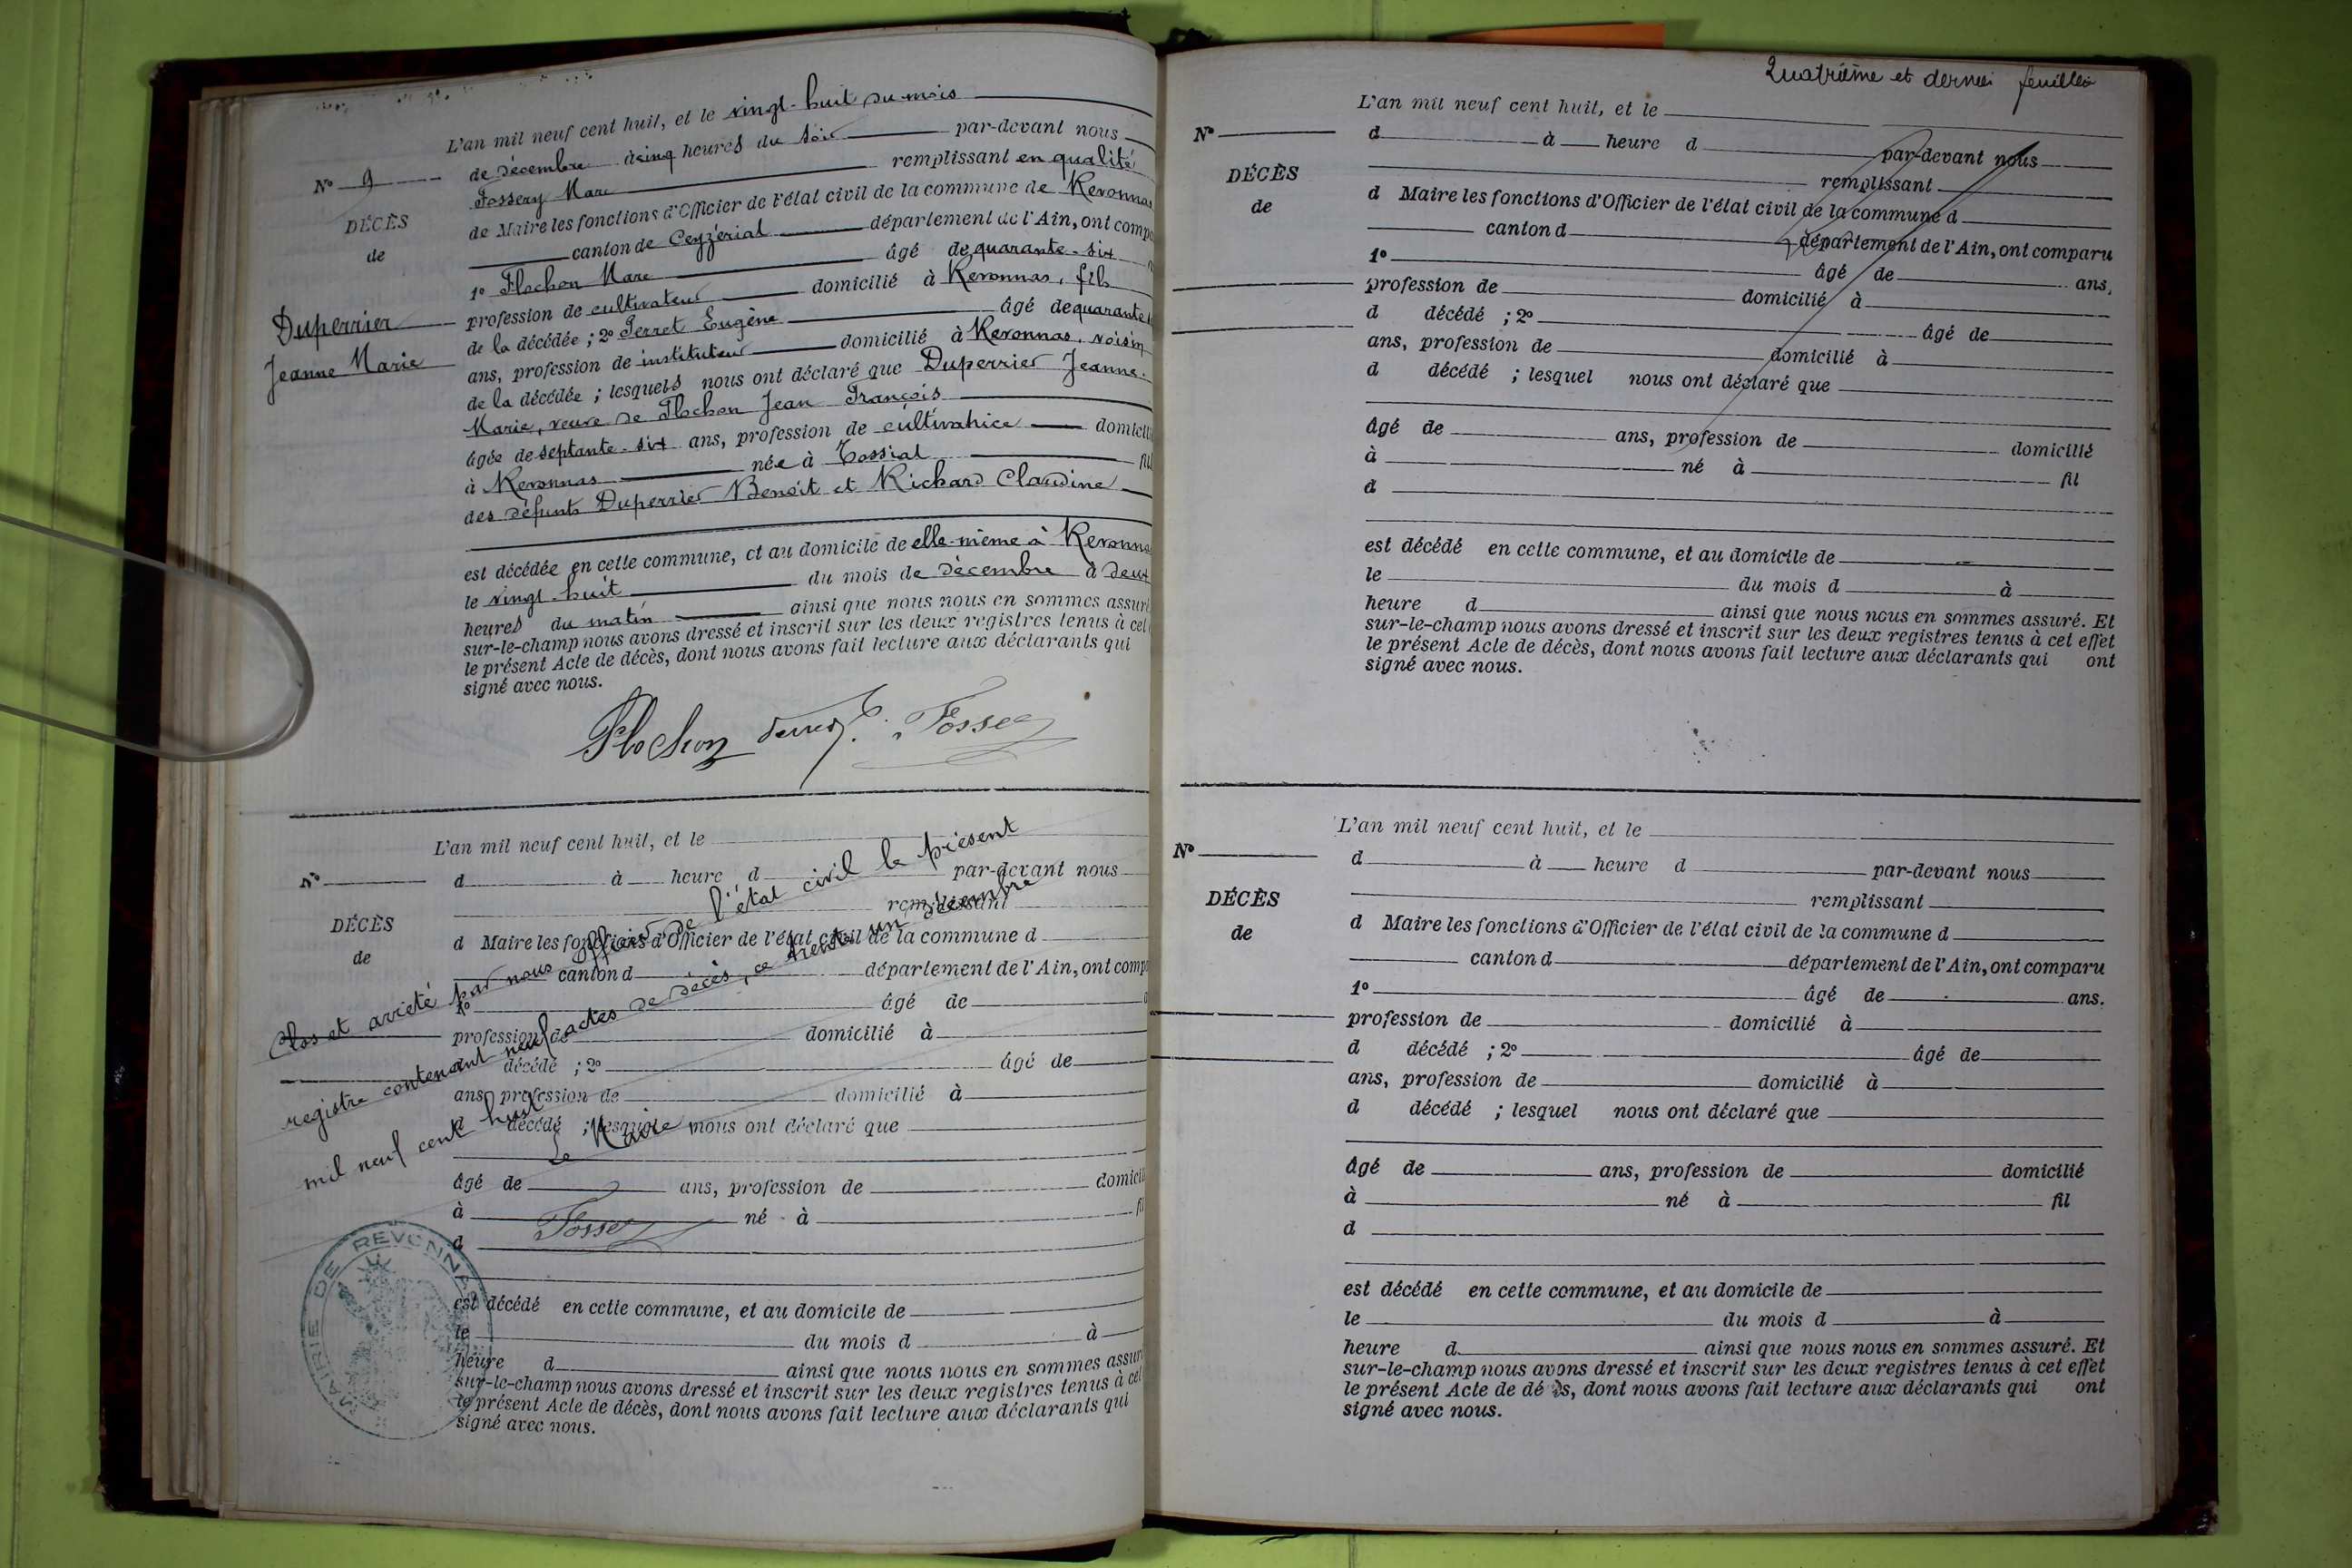 L'an mil neuf cent huit, et le vingt-huit du mois
de décembre à cinq heures du soir par-devant nous
Fossery Marc remplissant en qualité
de Maire les fonctions d'Officier de l'état civil de la commune de Revonnas
canton de Ceyzériat département de l'Ain, ont comp
1° Plochon Marc âgé de quarante-six
profession de cultivateur domicilié à Revonnas, fils
de la décédée ; 2° Perret Eugène âgé de quarante
ans, profession de instituteur domicilié à Revonnas, voisin
de la décédée ; lesquels nous ont déclaré que Duperrier Jeanne-
Marie, veuve de Plochon Jean François
âgée de septante-six ans, profession de cultivatrice domicili
à Revonnas née à Tossiat fil
des défunts Duperrier Benoit et Richard Claudine
est décédée en cette commune, et au domicile de elle-même à Revonna
le vingt-huit du mois de décembre à deux
heures du matin ainsi que nous nous en sommes assuré
sur-le-champ nous avons dressé et inscrit sur les deux registres tenus à cet
le présent Acte de décès, dont nous avons fait lecture aux déclarants qui
signé avec nous.
N° 9
DÉCÈS
de
Duperrier
Jeanne Marie
Plochon Perret E. Fossery
L'an mil neuf cent huit, et le
N°
d à heure d par-devant nous
remplissant
DÉCÈS
de
d Maire les fonctions d'Officier de l'état civil de la commune d
canton d département de l'Ain, ont comp
1° âgé de
profession de domicilié à
d décédé ; 2° âgé de
ans, profession de domicilié à
d décédé ; lesquel nous ont déclaré que
âgé de ans, profession de domicili
à né à fil
d
est décédé en cette commune, et au domicile de
le du mois d à
heure d ainsi que nous nous en sommes assuré
sur-le-champ nous avons dressé et inscrit sur les deux registres tenus à cet
le présent Acte de décès, dont nous avons fait lecture aux déclarants qui
signé avec nous.
Clos et arrêté par nous officier de l'état civil le présent
registre contenant neuf actes de décès, ce trente un décembre
mil neuf cent huit
Le Maire
Fossery
MAIRIE DE REVONNAS
Quatrième et dernier feuillet
L'an mil neuf cent huit, et le
N°
d à heure d par-devant nous
remplissant
DÉCÈS
de
d Maire les fonctions d'Officier de l'état civil de la commune d
canton d département de l'Ain, ont comparu
1° âgé de ans,
profession de domicilié à
d décédé ; 2° âgé de
ans, profession de domicilié à
d décédé ; lesquel nous ont déclaré que
âgé de ans, profession de domicilié
à né à fil
d
est décédé en cette commune, et au domicile de
le du mois d à
heure d ainsi que nous nous en sommes assuré. Et
sur-le-champ nous avons dressé et inscrit sur les deux registres tenus à cet effet
le présent Acte de décès, dont nous avons fait lecture aux déclarants qui ont
signé avec nous.
L'an mil neuf cent huit, et le
N°
d à heure d par-devant nous
remplissant
DÉCÈS
de
d Maire les fonctions d'Officier de l'état civil de la commune d
canton d département de l'Ain, ont comparu
1° âgé de ans.
profession de domicilié à
d décédé ; 2° âgé de
ans, profession de domicilié à
d décédé ; lesquel nous ont déclaré que
âgé de ans, profession de domicilié
à né à fil
d
est décédé en cette commune, et au domicile de
le du mois d à
heure d ainsi que nous nous en sommes assuré. Et
sur-le-champ nous avons dressé et inscrit sur les deux registres tenus à cet effet
le présent Acte de dé ès, dont nous avons fait lecture aux déclarants qui ont
signé avec nous.